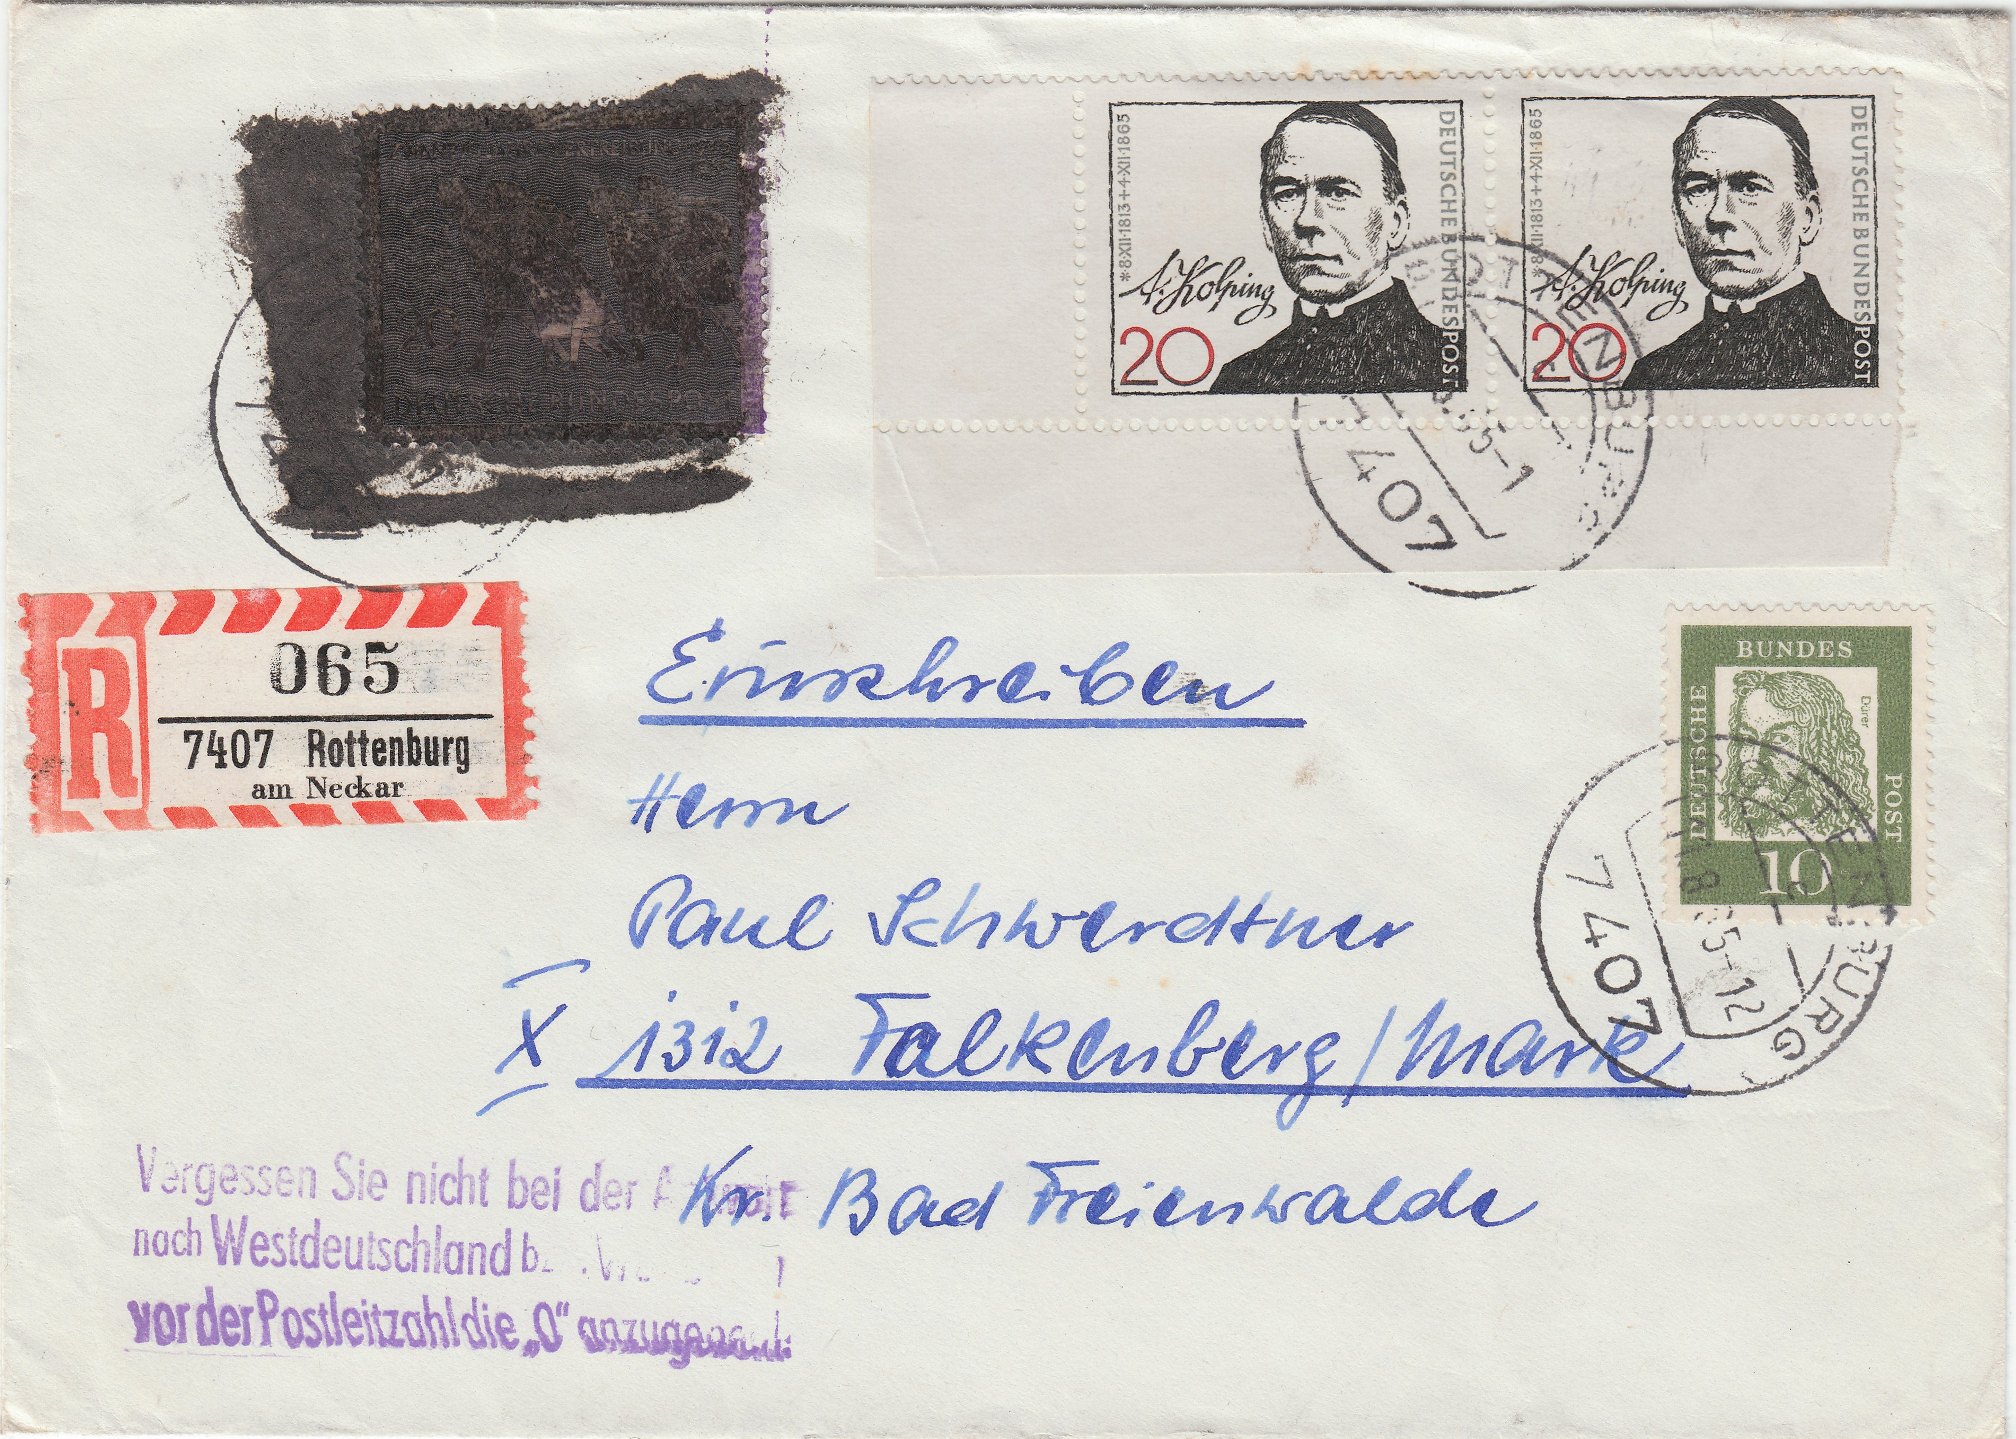 DEUTSCHE BUNDESPOST
*8·XII·1813 + 4·XII·1865
A. Kolping
20
DEUTSCHE BUNDESPOST
*8·XII·1813 + 4·XII·1865
A. Kolping
20
DEUTSCHE BUNDESPOST
ROTTENBURG
65-1
7407
R
065
7407 Rottenburg
am Neckar
Einschreiben
DEUTSCHE
BUNDES
POST
Dürer
10
ROTTENBURG
65-12
7407
Herrn
Paul Schwerdtner
X 1312 Falkenberg/Mark
Kr. Bad Freienwalde
Vergessen Sie nicht bei der
nach Westdeutschland
vor der Postleitzahl die „O“ anzugeben!